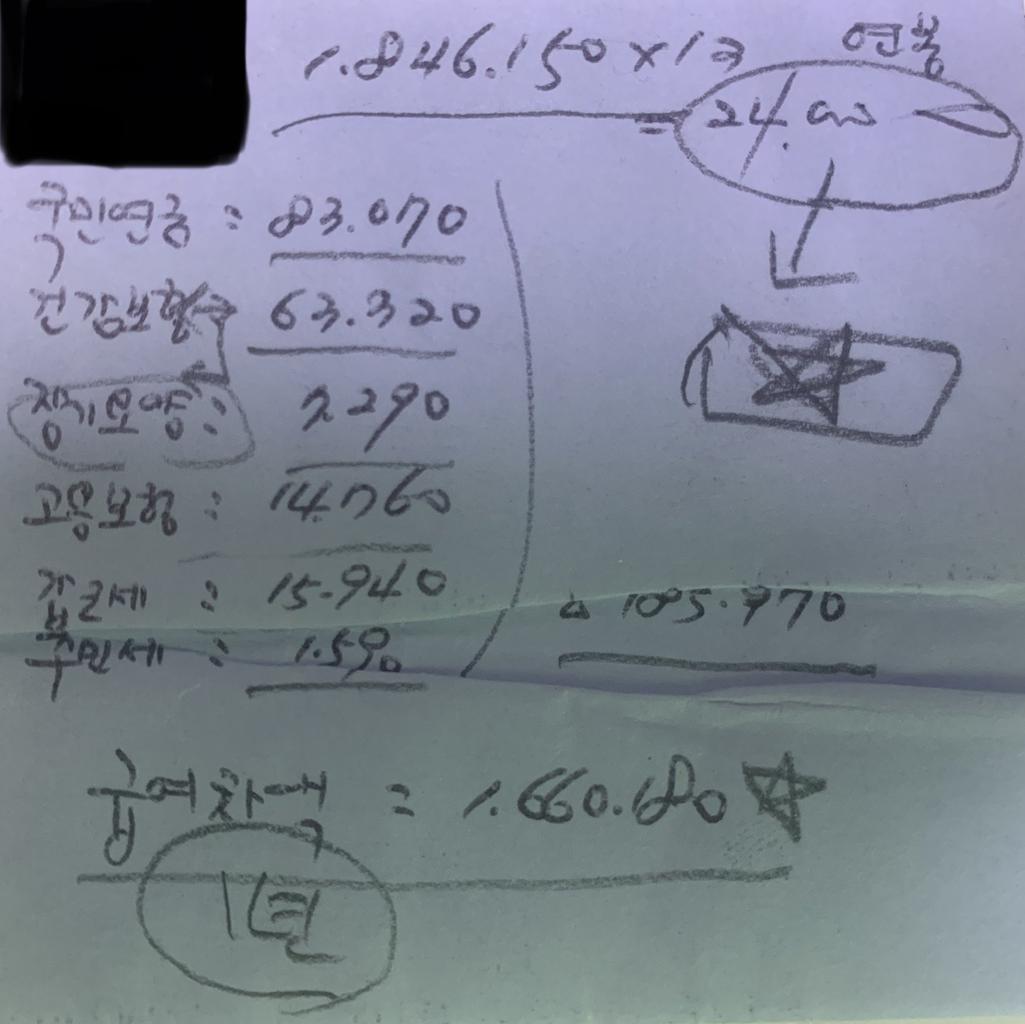 1.846.150 x 13
연봉
= 24.000
국민연금 : 83.070
건강보험 → 63.320
장기요양 : 7.290
고용보험 : 14.760
갑근세 : 15.940
주민세 : 1.590
△ 185.970
급여차액 = 1.660.180 ☆
1년